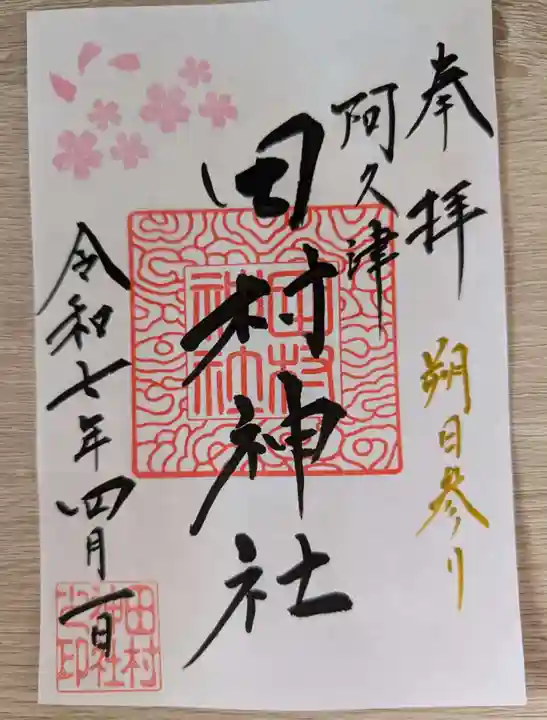 奉拝
朔日参り
阿久津
田村神社
田村神社
令和七年四月一日
田村神社之印